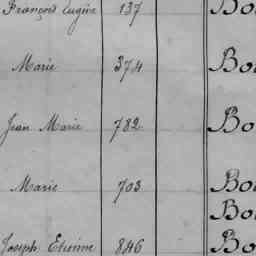 François Eugène 137 Bo
Marie 374 Bo
Jean Marie 782 Bo
Marie 703 Bo
Bo
Joseph Etienne 846 Bo